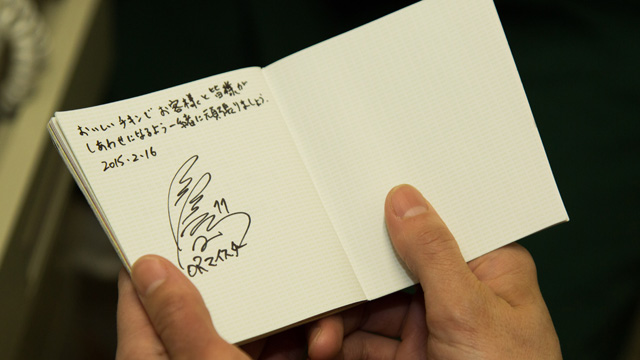 おいしいチキンでお客様と皆様が
しあわせになるよう一緒に頑張りましょう。
2015.2.16
11
ORマイスター